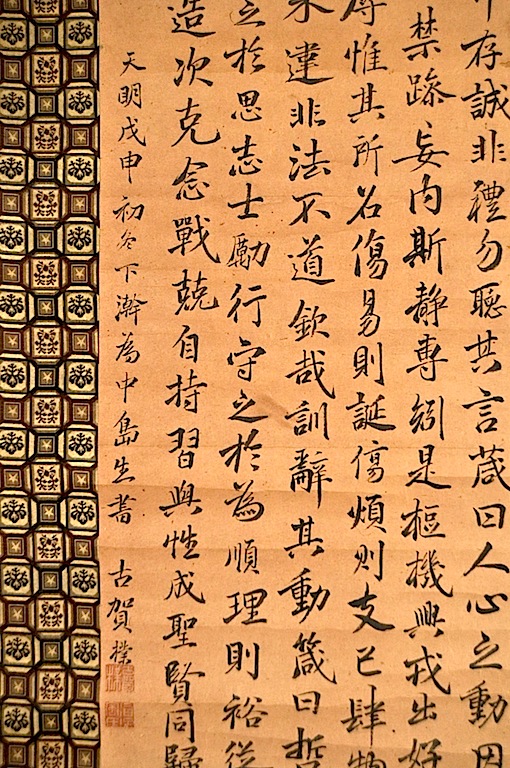 存誠非禮勿聽其言箴曰人心之動因
禁躁妄內斯靜專矧是樞機興戎出好
辱惟其所召傷易則誕傷煩則支己肆物
來違非法不道欽哉訓辭其動箴曰哲
之於思志士勵行守之於為順理則裕從
造次克念戰兢自持習與性成聖賢同歸
天明戊申初冬下澣為中島生書 古賀樸